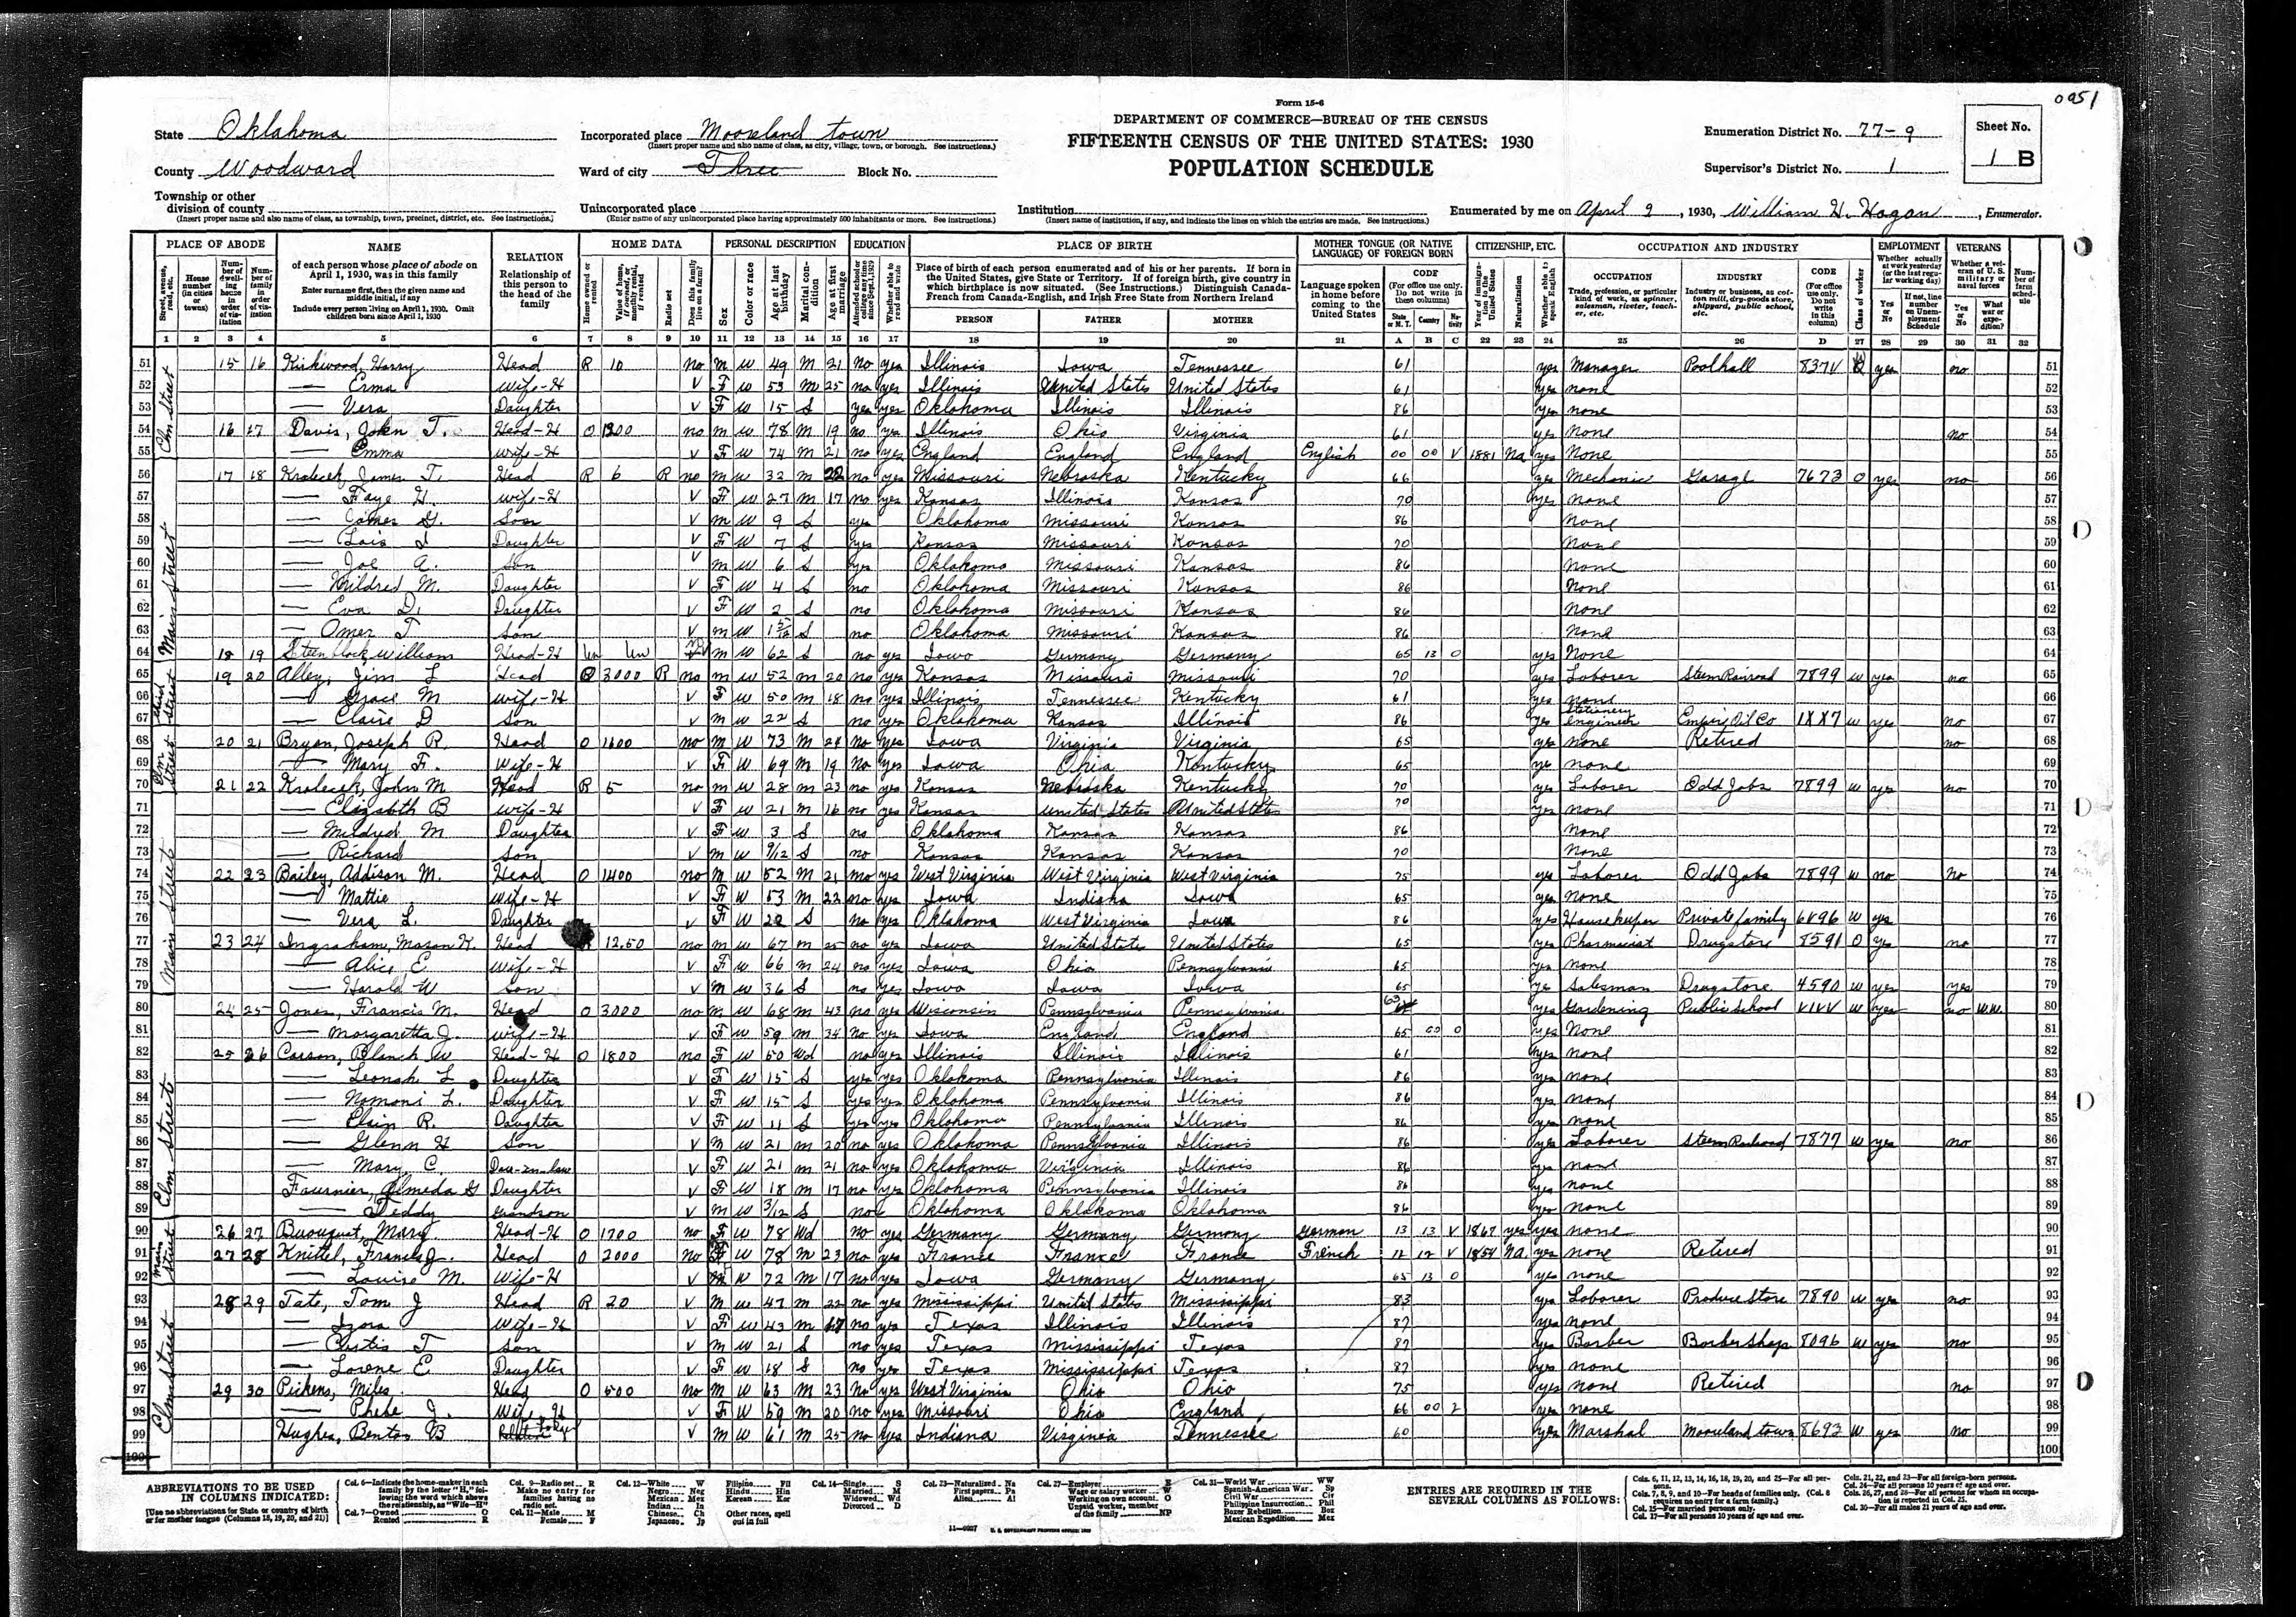 0951
Form 15-6
DEPARTMENT OF COMMERCE—BUREAU OF THE CENSUS
FIFTEENTH CENSUS OF THE UNITED STATES: 1930
POPULATION SCHEDULE
State Oklahoma
County Woodward
Township or other division of county
(Insert proper name and also name of class, as township, town, precinct, district, etc. See instructions.)
Incorporated place Mooreland town
(Insert proper name and also name of class, as city, village, town, or borough. See instructions.)
Ward of city Three Block No.
Unincorporated place
(Enter name of any unincorporated place having approximately 500 inhabitants or more. See instructions.)
Institution
(Insert name of institution, if any, and indicate the lines on which the entries are made. See instructions.)
Enumeration District No. 77-9
Supervisor's District No. 1
Sheet No. 1 B
Enumerated by me on April 9, 1930, William H. Hagan, Enumerator.
PLACE OF ABODE NAME RELATION HOME DATA PERSONAL DESCRIPTION EDUCATION PLACE OF BIRTH MOTHER TONGUE (OR NATIVE LANGUAGE) OF FOREIGN BORN CITIZENSHIP, ETC. OCCUPATION AND INDUSTRY EMPLOYMENT VETERANS
of each person whose place of abode on April 1, 1930, was in this family
Enter surname first, then the given name and middle initial, if any
Include every person living on April 1, 1930. Omit children born since April 1, 1930
Relationship of this person to the head of the family
Place of birth of each person enumerated and of his or her parents. If born in the United States, give State or Territory. If of foreign birth, give country in which birthplace is now situated. (See Instructions.) Distinguish Canada-French from Canada-English, and Irish Free State from Northern Ireland
PERSON FATHER MOTHER
Language spoken in home before coming to the United States
CODE (For office use only. Do not write in these columns)
OCCUPATION Trade, profession, or particular kind of work, as spinner, salesman, riveter, teacher, etc.
INDUSTRY Industry or business, as cotton mill, dry-goods store, shipyard, public school, etc.
1 2 3 4 5 6 7 8 9 10 11 12 13 14 15 16 17 18 19 20 21 A B C 22 23 24 25 26 D 27 28 29 30 31 32
51 15 16 Kirkwood, Harry Head R 10 no M W 49 M 21 no yes Illinois Iowa Tennessee 61 yes Manager Poolhall yes no 51
52 — Erma Wife-H V F W 53 M 25 no yes Illinois United States United States 61 yes none 52
53 — Vera Daughter V F W 15 S yes yes Oklahoma Illinois Illinois 86 yes none 53
54 16 17 Davis, John T. Head-H O 1200 no M W 78 M 19 no yes Illinois Ohio Virginia 61 yes None no 54
55 — Emma Wife-H V F W 74 M 21 no yes England England England English 00 00 V 1881 Na yes None 55
56 17 18 James T. Head R 6 R no M W 32 M 22 no yes Missouri Nebraska Kentucky 66 yes Mechanic Garage 7673 O yes no 56
57 — Faye Wife-H V F W 27 M 17 no yes Kansas Illinois Kansas 70 yes none 57
58 — James G. Son V M W 9 S yes Oklahoma Missouri Kansas 86 None 58
59 — Lois Daughter V F W 7 S yes Kansas Missouri Kansas 70 None 59
60 — Joe A. Son V M W 6 S yes Oklahoma Missouri Kansas 86 None 60
61 — Mildred M. Daughter V F W 4 S no Oklahoma Missouri Kansas 86 None 61
62 — Eva D. Daughter V F W 2 S no Oklahoma Missouri Kansas 86 None 62
63 — Omer T. Son V M W 1 5/12 S no Oklahoma Missouri Kansas 86 None 63
64 18 19 Steenblock William Head-H Un Un M W 62 S no yes Iowa Germany Germany 65 13 0 yes None 64
65 19 20 Alley, Jim L Head O 3000 R no M W 52 M 20 no yes Kansas Missouri Missouri 70 yes Laborer Steam Railroad 7899 W yes no 65
66 — Grace M Wife-H V F W 50 M 18 no yes Illinois Tennessee Kentucky 61 yes none 66
67 — Claire D Son V M W 22 S no yes Oklahoma Kansas Illinois 86 yes Stationery engineer Empire Oil Co 1XX7 W yes no 67
68 20 21 Bryan, Joseph R. Head O 1600 no M W 73 M no yes Iowa Virginia Virginia 65 yes none Retired no 68
69 — Mary F. Wife-H V F W 69 M 19 no yes Iowa Ohio Kentucky 65 yes none 69
70 21 22 John M Head R 5 no M W 28 M 23 no yes Kansas Nebraska Kentucky 70 yes Laborer Odd Jobs 7899 W yes no 70
71 — Elizabeth B Wife-H V F W 21 M 16 no yes Kansas United States United States 70 yes none 71
72 — Mildred M Daughter V F W 3 S no Oklahoma Kansas Kansas 86 None 72
73 — Richard Son V M W 9/12 S no Kansas Kansas Kansas 70 None 73
74 22 23 Bailey, Addison M. Head O 1400 no M W 52 M 21 no yes West Virginia West Virginia West Virginia 75 yes Laborer Odd Jobs 7899 W no no 74
75 — Mattie Wife-H V F W 53 M 22 no yes Iowa Indiana Iowa 65 yes none 75
76 — Vera L. Daughter V F W S no yes Oklahoma West Virginia Iowa 86 yes Housekeeper Private family 6V96 W yes 76
77 23 24 Ingraham, Mason K. Head R 12.50 no M W 67 M 25 no yes Iowa United States United States 65 yes Pharmacist Drugstore 8591 O yes no 77
78 — Alice E Wife-H V F W 66 M 24 no yes Iowa Ohio Pennsylvania 65 yes none 78
79 — Harold W Son V M W 36 S no yes Iowa Iowa Iowa 65 yes Salesman Drugstore 4590 W yes yes 79
80 24 25 Jones, Francis M. Head O 3000 no M W 68 M 43 no yes Wisconsin Pennsylvania Pennsylvania 63 yes Gardening Public School VIVV W yes no WW. 80
81 — Margaretta J. Wife-H V F W 59 M 34 no yes Iowa England England 65 00 0 yes None 81
82 25 26 Carson, Blanch W Head-H O 1800 no F W 50 Wd no yes Illinois Illinois Illinois 61 yes none 82
83 — Leonah L Daughter V F W 15 S yes yes Oklahoma Pennsylvania Illinois 86 yes none 83
84 — Nomoni L. Daughter V F W 15 S yes yes Oklahoma Pennsylvania Illinois 86 yes none 84
85 — Elain R. Daughter V F W 11 S yes yes Oklahoma Pennsylvania Illinois 86 yes none 85
86 — Glenn H Son V M W 21 M 20 no yes Oklahoma Pennsylvania Illinois 86 yes Laborer Steam Railroad 7877 W yes no 86
87 — Mary C. Dau-in-law V F W 21 M 21 no yes Oklahoma Virginia Illinois 86 yes none 87
88 Fournier, Almeda G Daughter V F W 18 M 17 no yes Oklahoma Pennsylvania Illinois 86 yes none 88
89 — Teddy Grandson V M W 3/12 S no Oklahoma Oklahoma Oklahoma 86 yes none 89
90 26 27 Mary Head-H O 1700 no F W 78 Wd no yes Germany Germany Germany German 13 13 V 1867 yes yes none 90
91 27 28 Knittel, Francis J. Head O 2000 no W 78 M 23 no yes France France France French 12 12 V 1854 Na. yes none Retired 91
92 — Louise M. Wife-H V W 72 M 17 no yes Iowa Germany Germany 65 13 0 yes none 92
93 28 29 Tate, Tom J Head R 20 V M W 47 M 22 no yes Mississippi United States Mississippi 83 yes Laborer Produce Store 7890 W yes no 93
94 — Izora Wife-H V F W 43 M 17 no yes Texas Illinois Illinois 87 yes none 94
95 — Curtis T Son V M W 21 S no yes Texas Mississippi Texas 87 yes Barber Barber Shop 8096 W yes no 95
96 — Lorene E Daughter V F W 18 S no yes Texas Mississippi Texas 87 yes none 96
97 29 30 Pickens, Miles Head O 500 no M W 63 M 23 no yes West Virginia Ohio Ohio 75 yes none Retired no 97
98 — Phebe J. Wife-H V F W 59 M 20 no yes Missouri Ohio England 66 00 2 yes none 98
99 Hughes, Benton B V M W 61 M 25 no yes Indiana Virginia Tennessee 60 yes Marshal Mooreland town 8693 W yes no 99
100 100
Elm Street
Main Street
Third Street
Elm Street
Main Street
Elm Street
Main Street
Elm Street
ABBREVIATIONS TO BE USED IN COLUMNS INDICATED:
[Use no abbreviations for State or country of birth or for mother tongue (Columns 18, 19, 20, and 21)]
Col. 6—Indicate the home-maker in each family by the letter "H," following the word which shows the relationship, as "Wife—H"
Col. 7—Owned O Rented R
Col. 9—Radio set R Make no entry for families having no radio set.
Col. 11—Male M Female F
Col. 12—White W Negro Neg Mexican Mex Indian In Chinese Ch Japanese Jp
Filipino Fil Hindu Hin Korean Kor Other races, spell out in full
Col. 14—Single S Married M Widowed Wd Divorced D
Col. 23—Naturalized Na First papers Pa Alien Al
Col. 27—Employer E Wage or salary worker W Working on own account O Unpaid worker, member of the family NP
Col. 31—World War WW Spanish-American War Sp Civil War Civ Philippine Insurrection Phil Boxer Rebellion Box Mexican Expedition Mex
ENTRIES ARE REQUIRED IN THE SEVERAL COLUMNS AS FOLLOWS:
Cols. 6, 11, 12, 13, 14, 16, 18, 19, 20, and 25—For all persons.
Cols. 7, 8, 9, and 10—For heads of families only. (Col. 8 requires no entry for a farm family.)
Col. 15—For married persons only.
Col. 17—For all persons 10 years of age and over.
Cols. 21, 22, and 23—For all foreign-born persons.
Col. 24—For all persons 10 years of age and over.
Cols. 26, 27, and 28—For all persons for whom an occupation is reported in Col. 25.
Col. 30—For all males 21 years of age and over.
U. S. GOVERNMENT PRINTING OFFICE